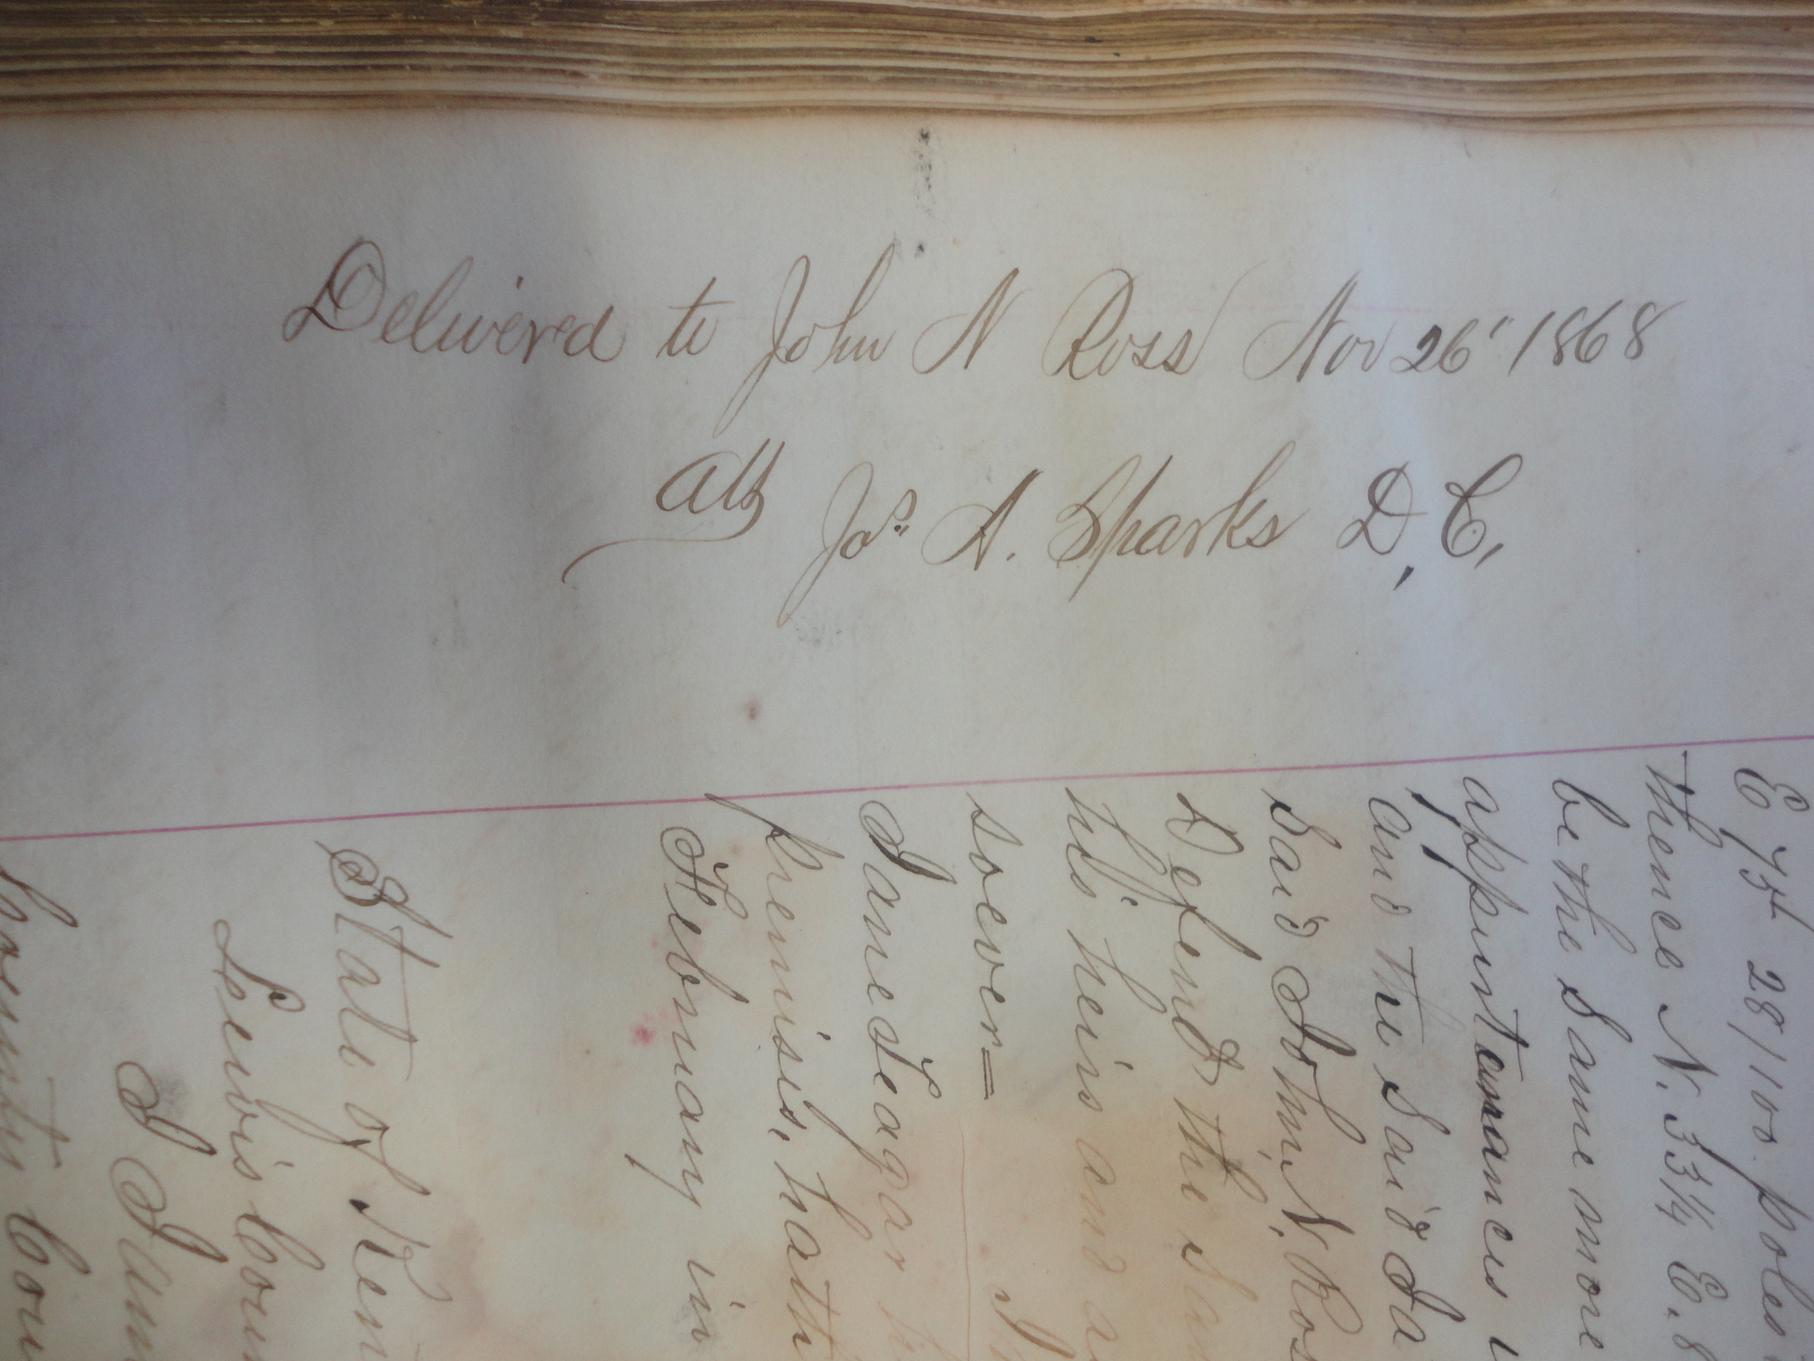 Delivered to John N Ross Nov 26" 1868
Att Jos. A. Sparks D. C.
E 75 28/100 poles
thence N. 33 1/4 E. 8
be the same more
appurtanances
and the said Ja
said John N. Ros
Defend the san
his heirs and a
soever=
Jane Seagar h
premises, hath
February in
State of Ken
Lewis Coun
I
County Cou